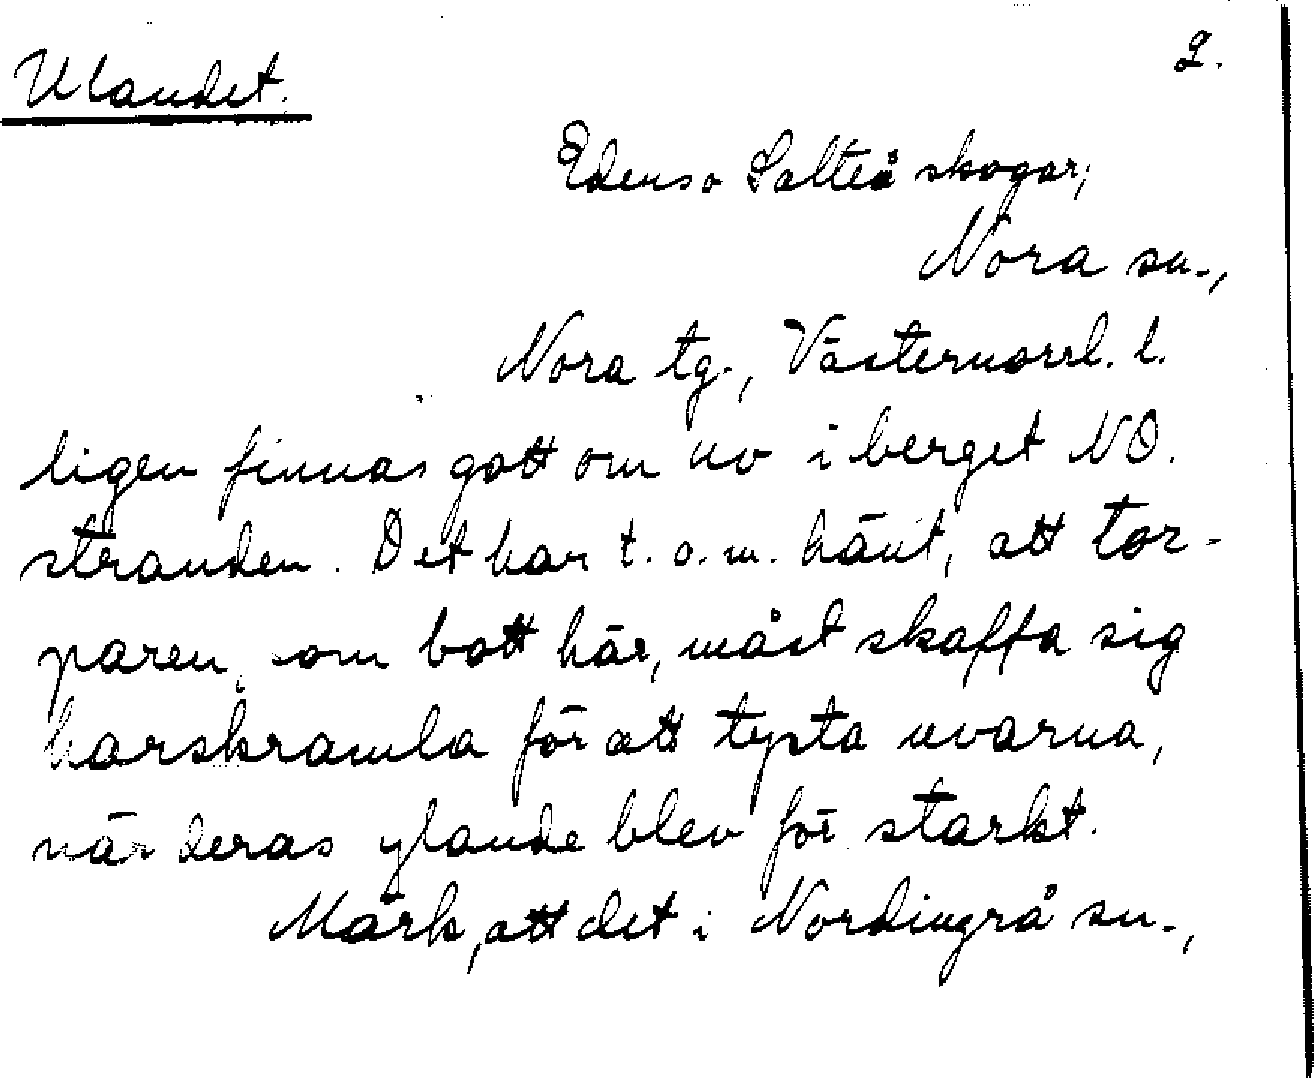 Ulandet.
2.
Edens o Salteå skogar,
Nora sn.,
Nora tg., Västernorrl. l.
ligen finnas gott om uv i berget NO.
stranden. Det har t. o. m. hänt, att tor-
paren, som bott här, måst skaffa sig
harskramla för att tysta uvarna,
när deras ylande blev för starkt.
Märk, att det i Nordingrå sn.,